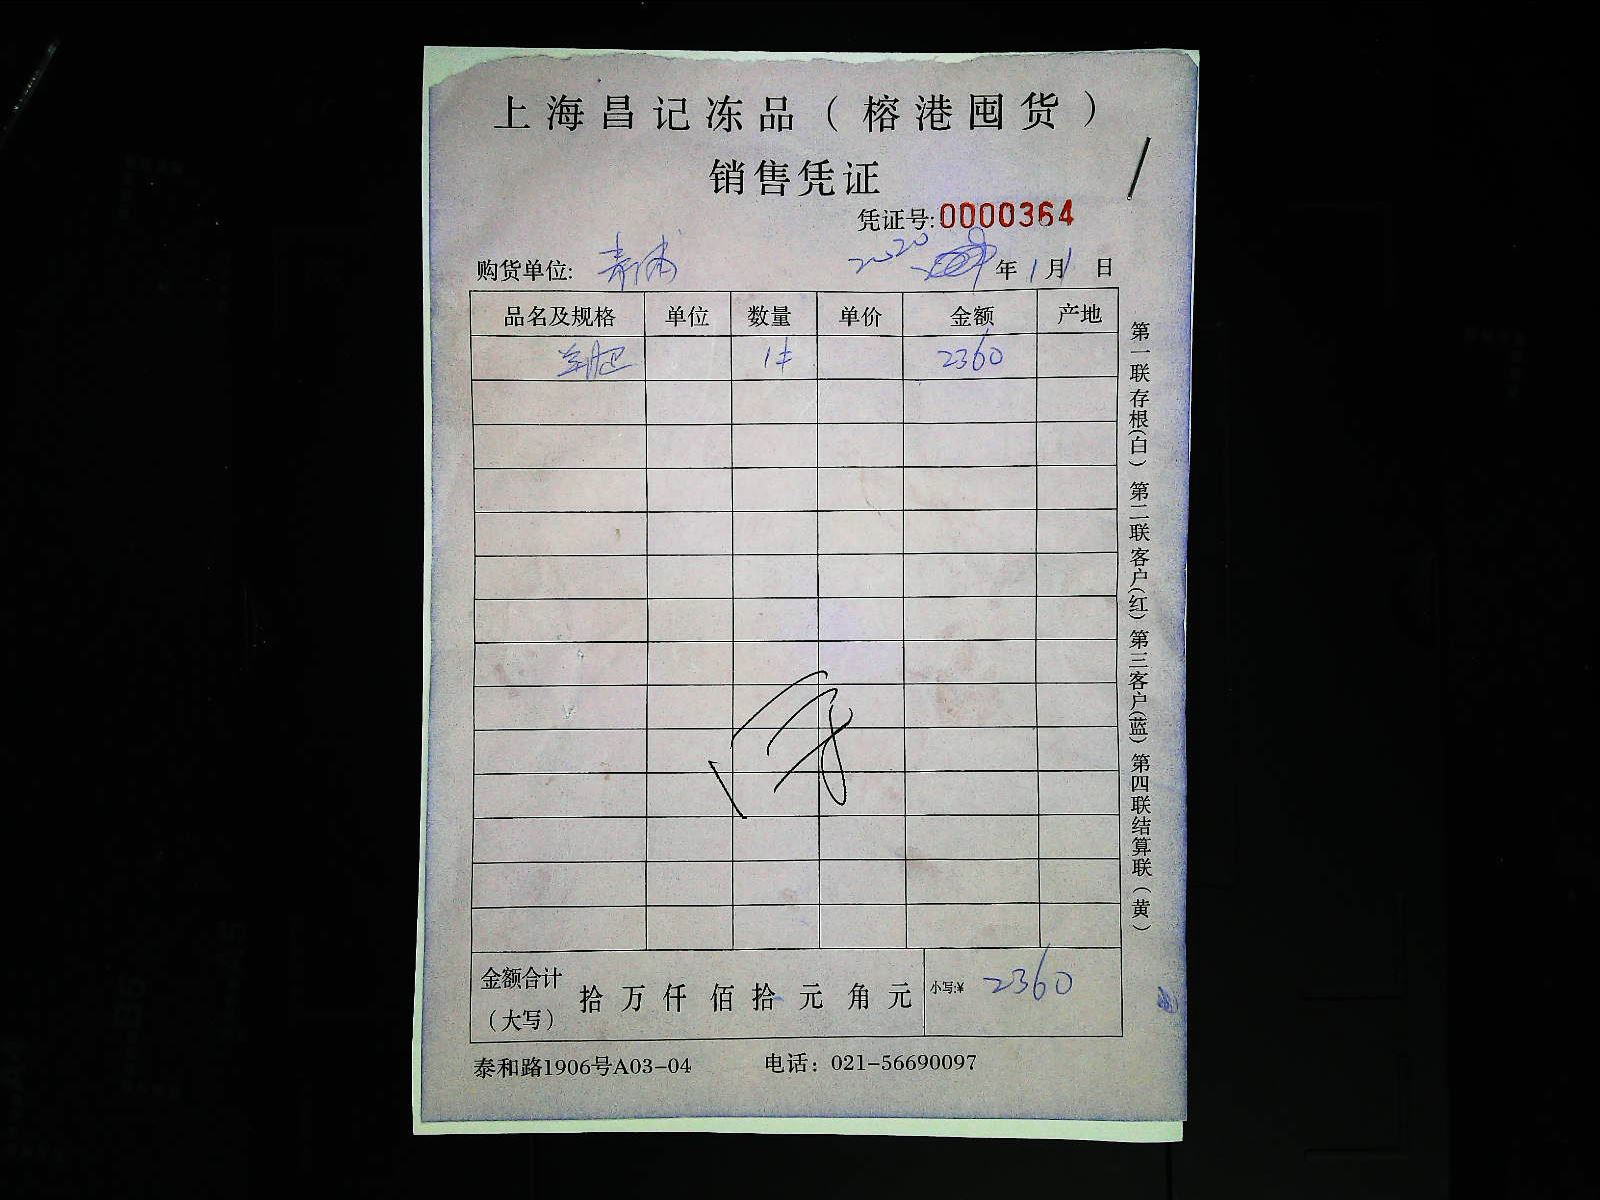 上海昌记冻品（榕港囤货）
销售凭证
凭证号:0000364
购货单位: 青浦 2020年1月1日
品名及规格 单位 数量 单价 金额 产地
1# 2360
金额合计（大写） 拾 万 仟 佰 拾 元 角 元 小写:¥ 2360
泰和路1906号A03-04 电话：021-56690097
第一联存根(白) 第二联客户(红) 第三客户(蓝) 第四联结算联（黄）